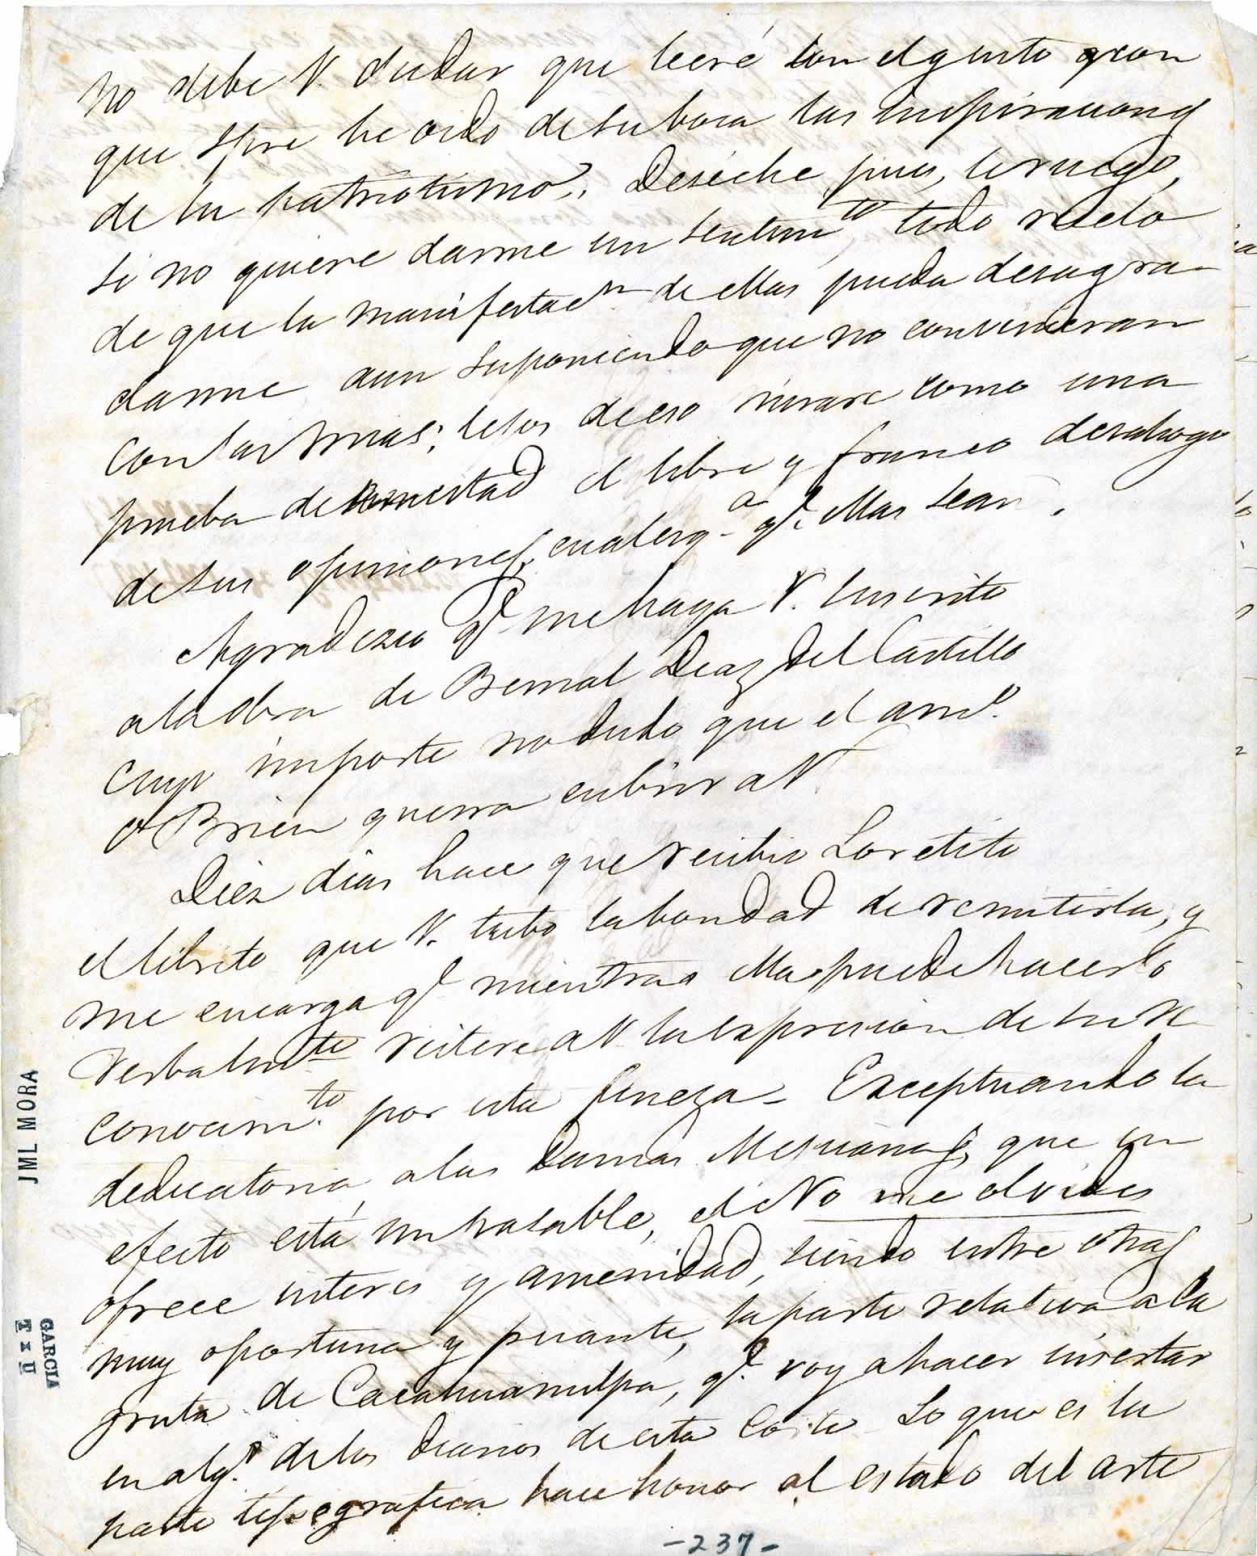 No debe V. dudar que leeré con el gusto q con
que spre he oido de su boca las inspiraciones
de su patriotismo. Deseche pues, le ruego,
si no quiere darme un sentimto todo recelo
de que la manifestacn de ellas pueda desagra-
darme aun suponiendo que no convinieran
con las mias; lejos de eso mirare como una
prueba de amistad el libre y franco desahogo
de sus opiniones, cualesq.a q.e ellas sean.
Agradezco q.e me haya V. suscrito
a la obra de Bernal Diaz del Castillo
cuyo importe no dudo que el am.o
O Brien querra cubrir a V.
Diez dias hace que recibio Loretito
el librito que V. tubo la bondad de remitirla, y
me encarga q.e mientras ella puede hacerlo
verbalmte reitere a V. la expresion de su re
conocim.to por esta fineza - Exceptuando la
dedicatoria a las Damas Mejicanas, que en
efecto está intratable, el No me olvides
ofrece interes y amenidad, siendo entre otras
muy oportuna y picante, la parte relativa a la
gruta de Cacahuamilpa, q.e voy a hacer insertar
en alg.o de los diarios de esta Corte. Lo que es la
parte tipografica hace honor al estado del arte
-237-
JML MORA
GARCIA